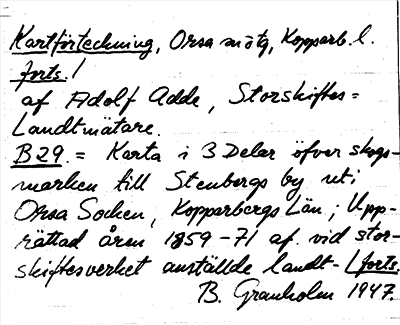 Kartförteckning, Orsa snötg, Kopparb. l.
forts. /
af Adolf Adde, Storskiftes=
Landtmätare.
B29. = Karta i 3 Delar öfver skogs-
marken till Stenbergs by uti
Orsa Socken, Kopparbergs Län; Upp-
rättad åren 1859-71 af vid stor-
skiftesverket anställde landt- / forts.
B. Granholm 1947.